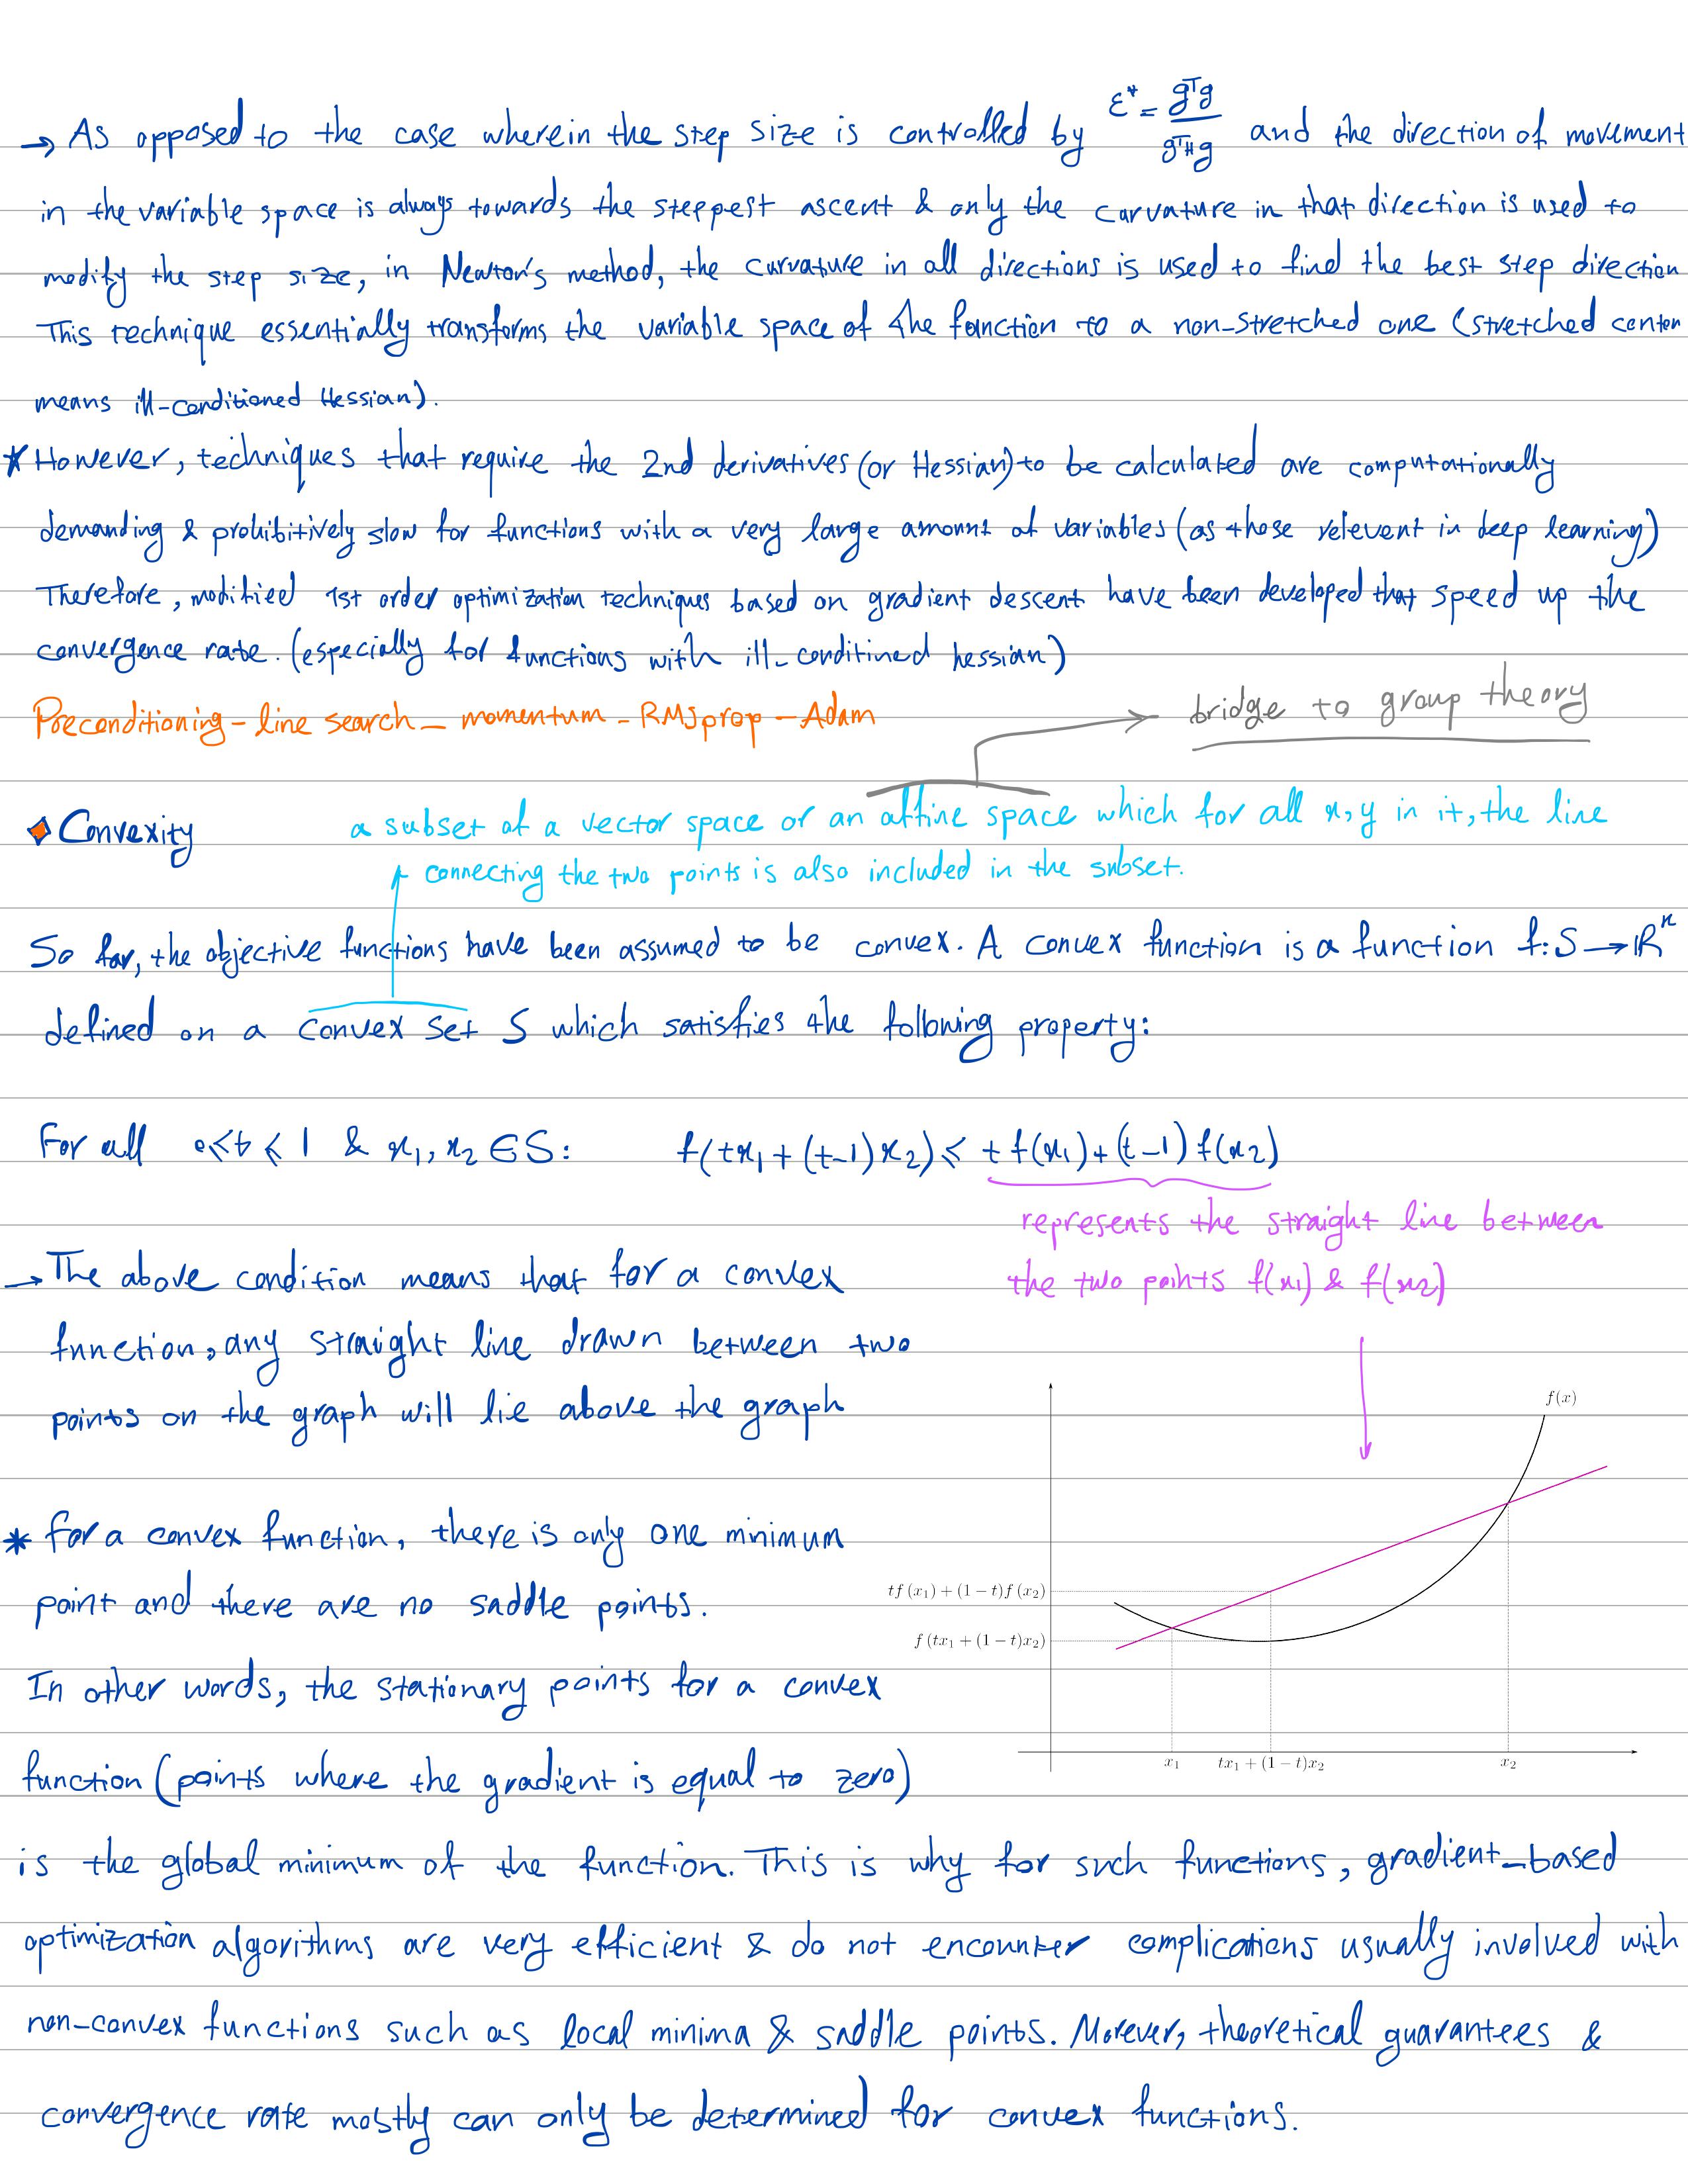 → As opposed to the case wherein the step size is controlled by ε* = gᵀg / gᵀHg and the direction of movement
in the variable space is always towards the steppest ascent & only the curvature in that direction is used to
modify the step size, in Newton's method, the curvature in all directions is used to find the best step direction
This technique essentially transforms the variable space of the function to a non-stretched one (stretched contor
means ill-conditioned Hessian).
* However, techniques that require the 2nd derivatives (or Hessian) to be calculated are computationally
demanding & prohibitively slow for functions with a very large amount of variables (as those relevent in deep learning)
Therefore, modified 1st order optimization techniques based on gradient descent have been developed that speed up the
convergence rate. (especially for functions with ill-conditined hessian)
Preconditioning - line search - momentum - RMSprop - Adam
bridge to group theory
◆ Convexity
a subset of a vector space or an affine space which for all x, y in it, the line
connecting the two points is also included in the subset.
So far, the objective functions have been assumed to be convex. A convex function is a function f: S → ℝⁿ
defined on a convex set S which satisfies the following property:
For all 0 ≤ t ≤ 1 & x₁, x₂ ∈ S: f(tx₁ + (t-1)x₂) ≤ t f(x₁) + (t-1) f(x₂)
represents the straight line between
the two points f(x₁) & f(x₂)
→ The above condition means that for a convex
function, any straight line drawn between two
points on the graph will lie above the graph
* for a convex function, there is only one minimum
point and there are no saddle points.
In other words, the stationary points for a convex
function (points where the gradient is equal to zero)
f(x)
tf(x₁) + (1 − t)f(x₂)
f(tx₁ + (1 − t)x₂)
x₁ tx₁ + (1 − t)x₂ x₂
is the global minimum of the function. This is why for such functions, gradient-based
optimization algorithms are very efficient & do not encounter complications usually involved with
non-convex functions such as local minima & saddle points. Morever, theoretical guarantees &
convergence rate mostly can only be determined for convex functions.